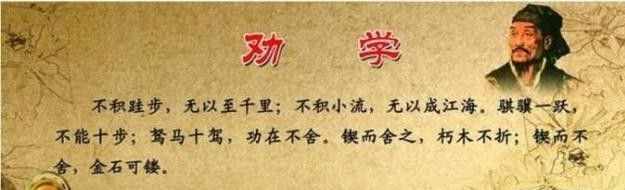 劝 学
不积跬步，无以至千里；不积小流，无以成江海。骐骥一跃，
不能十步；驽马十驾，功在不舍。锲而舍之，朽木不折；锲而不
舍，金石可镂。